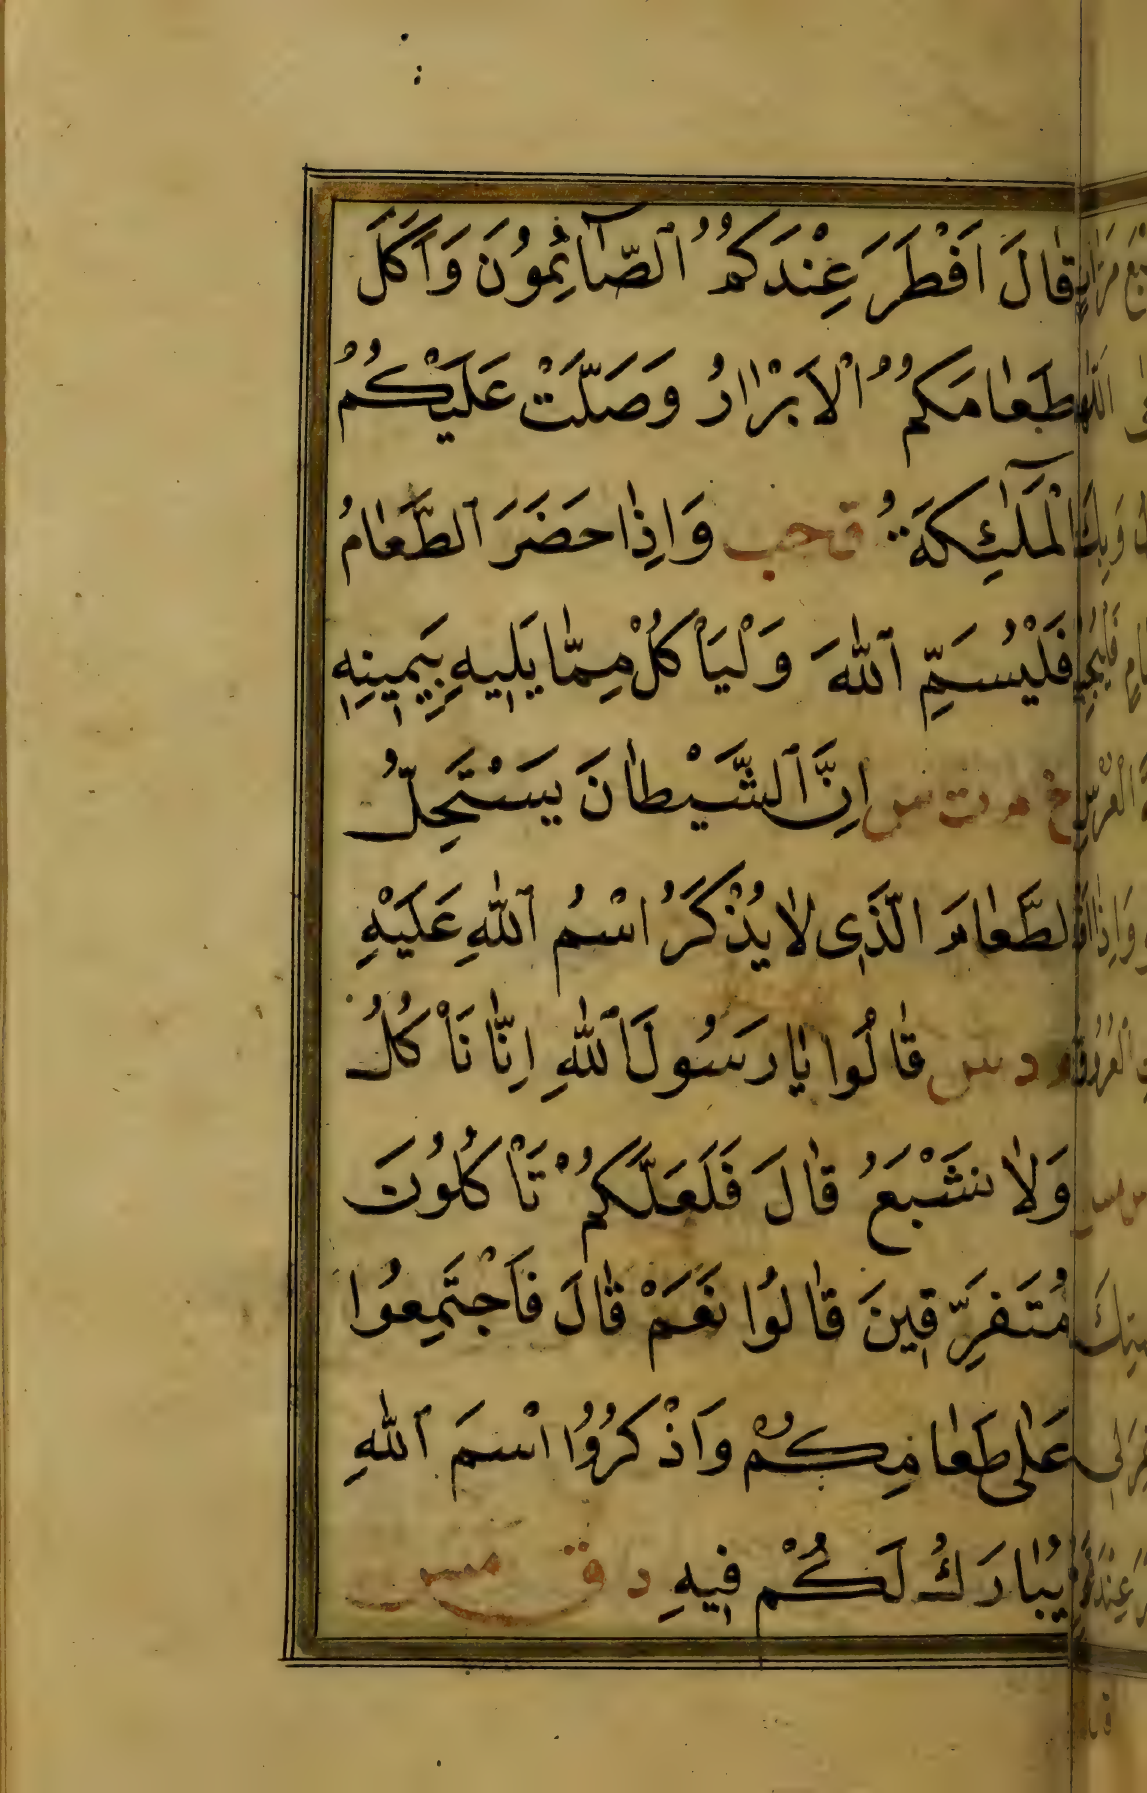 قَالَ اَفْطَرَ عِنْدَكُمُ ٱلصَّآئِمُونَ وَاَكَلَ
طَعَامَكُمُ ٱلْاَبْرَارُ وَصَلَّتْ عَلَيْكُمُ
ٱلْمَلَٰٓئِكَةُ ق حب وَاِذَا حَضَرَ ٱلطَّعَامُ
فَلْيُسَمِّ ٱللهَ وَلْيَأْكُلْ مِمَّا يَلِيهِ بِيَمِينِهِ
خ م ت س اِنَّ ٱلشَّيْطَانَ يَسْتَحِلُّ
ٱلطَّعَامَ الَّذِى لَا يُذْكَرُ اسْمُ ٱللهِ عَلَيْهِ
م د س قَالُوا يَا رَسُولَ ٱللهِ اِنَّا نَأْكُلُ
وَلَا نَشْبَعُ قَالَ فَلَعَلَّكُمْ تَأْكُلُونَ
مُتَفَرِّقِينَ قَالُوا نَعَمْ قَالَ فَاجْتَمِعُوا
عَلٰى طَعَامِكُمْ وَاذْكُرُوا اسْمَ ٱللهِ
يُبَارَكْ لَكُمْ فِيهِ د ق مس